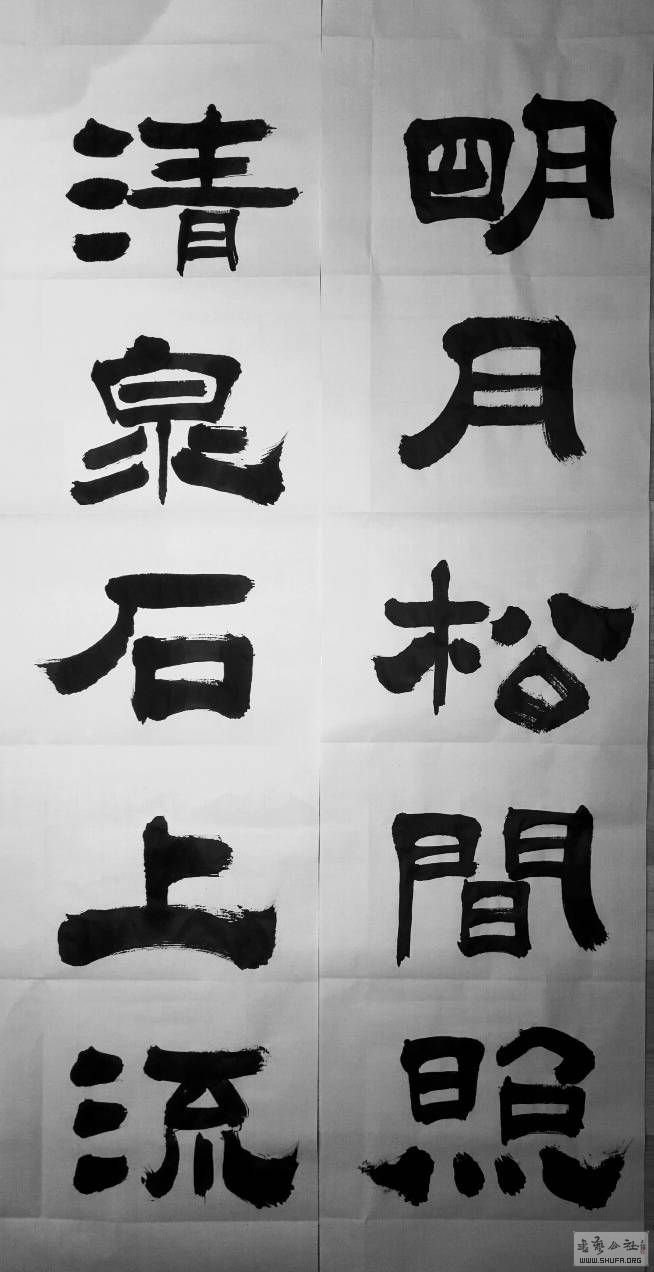 明月松間照
清泉石上流
WWW.SHUFA.ORG